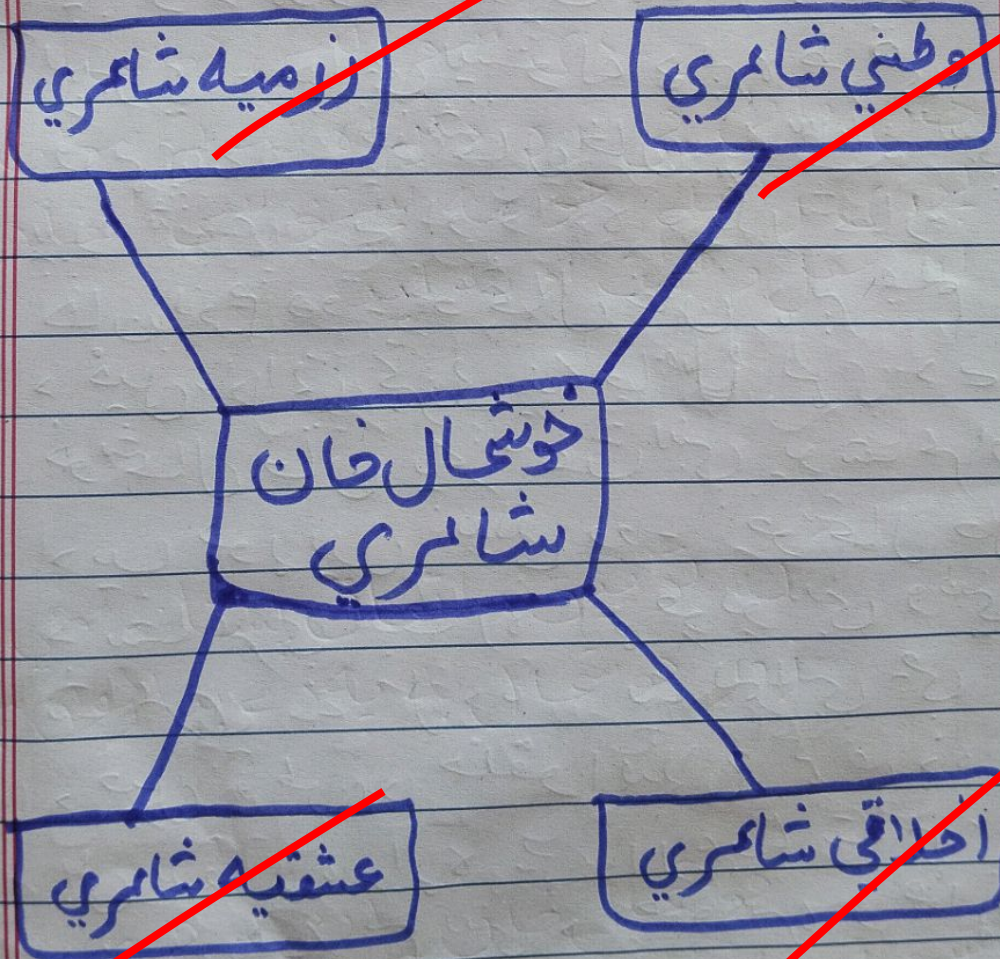 وطني شاعري
رزميه شاعري
خوشحال خان
شاعري
اخلاقي شاعري
عشقيه شاعري